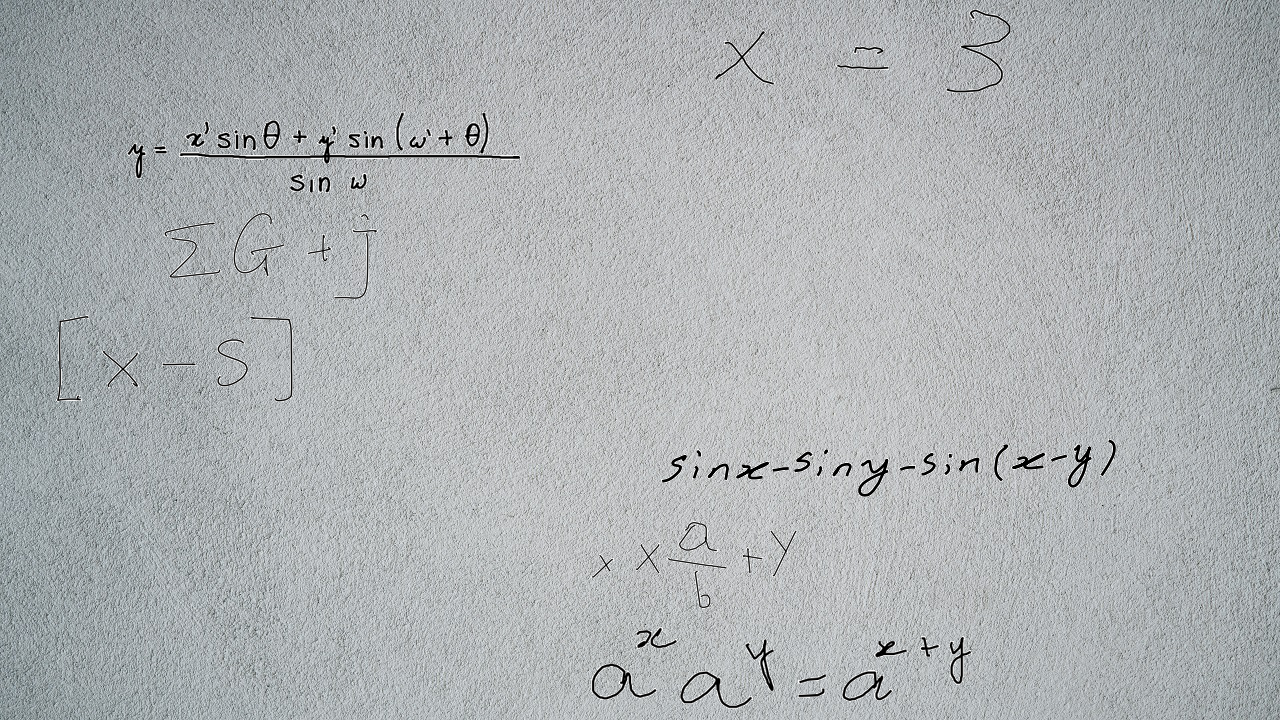 x = 3
y = \frac{x' sin θ + y' sin (ω' + θ)}{sin ω}
Σ G + j
[x - s]
sin x - sin y - sin (x - y)
x × \frac{a}{b} + y
a^x a^y = a^{x + y}